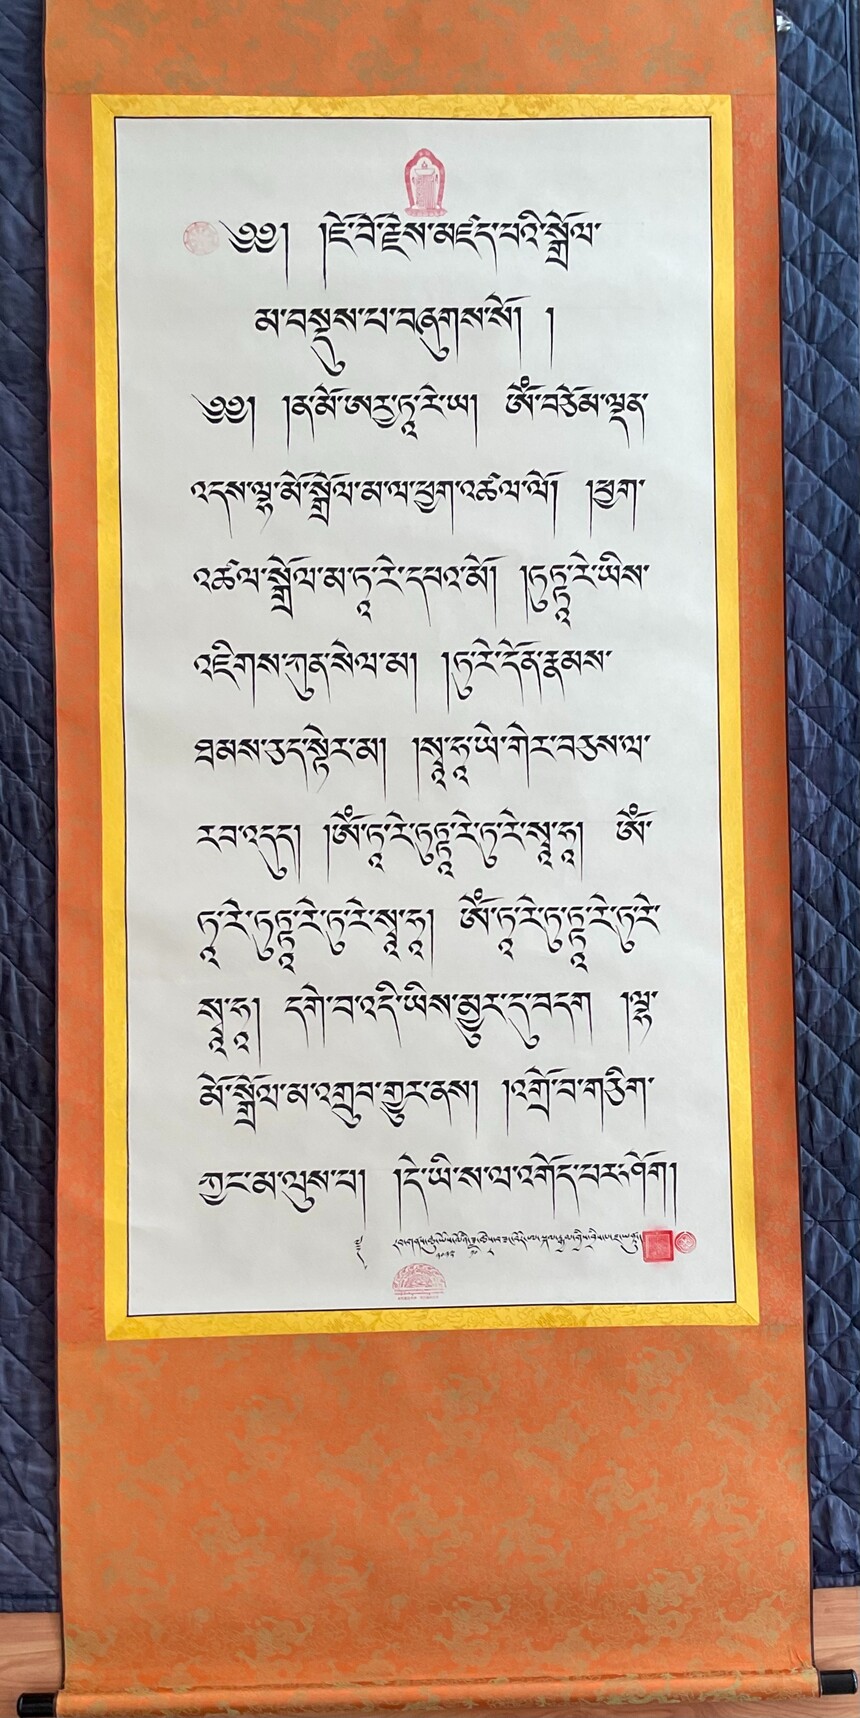 ༄༅། །ཇོ་བོ་རྗེས་མཛད་པའི་སྒྲོལ་
མ་བསྡུས་པ་བཞུགས་སོ། །
༄༅། །ན་མོ་ཨཱརྱ་ཏཱ་རེ་ཡ། ཨོཾ་བཅོམ་ལྡན་
འདས་ལྷ་མོ་སྒྲོལ་མ་ལ་ཕྱག་འཚལ་ལོ། །ཕྱག་
འཚལ་སྒྲོལ་མ་ཏཱ་རེ་དཔའ་མོ། །ཏུཏྟཱ་རེ་ཡིས་
འཇིགས་ཀུན་སེལ་མ། །ཏུ་རེ་དོན་རྣམས་
ཐམས་ཅད་སྟེར་མ། །སྭཱ་ཧཱ་ཡི་གེར་བཅས་ལ་
རབ་འདུད། །ཨོཾ་ཏཱ་རེ་ཏུཏྟཱ་རེ་ཏུ་རེ་སྭཱ་ཧཱ། ཨོཾ་
ཏཱ་རེ་ཏུཏྟཱ་རེ་ཏུ་རེ་སྭཱ་ཧཱ། ཨོཾ་ཏཱ་རེ་ཏུ་ཏྟཱ་རེ་ཏུ་རེ་
སྭཱ་ཧཱ། དགེ་བ་འདི་ཡིས་མྱུར་དུ་བདག །ལྷ་
མོ་སྒྲོལ་མ་འགྲུབ་གྱུར་ནས། །འགྲོ་བ་གཅིག་
ཀྱང་མ་ལུས་པ། །དེ་ཡི་ས་ལ་འགོད་པར་ཤོག།